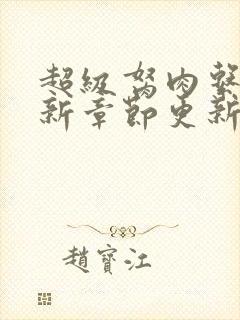 超級弩肉
新章節更新
趙寶江